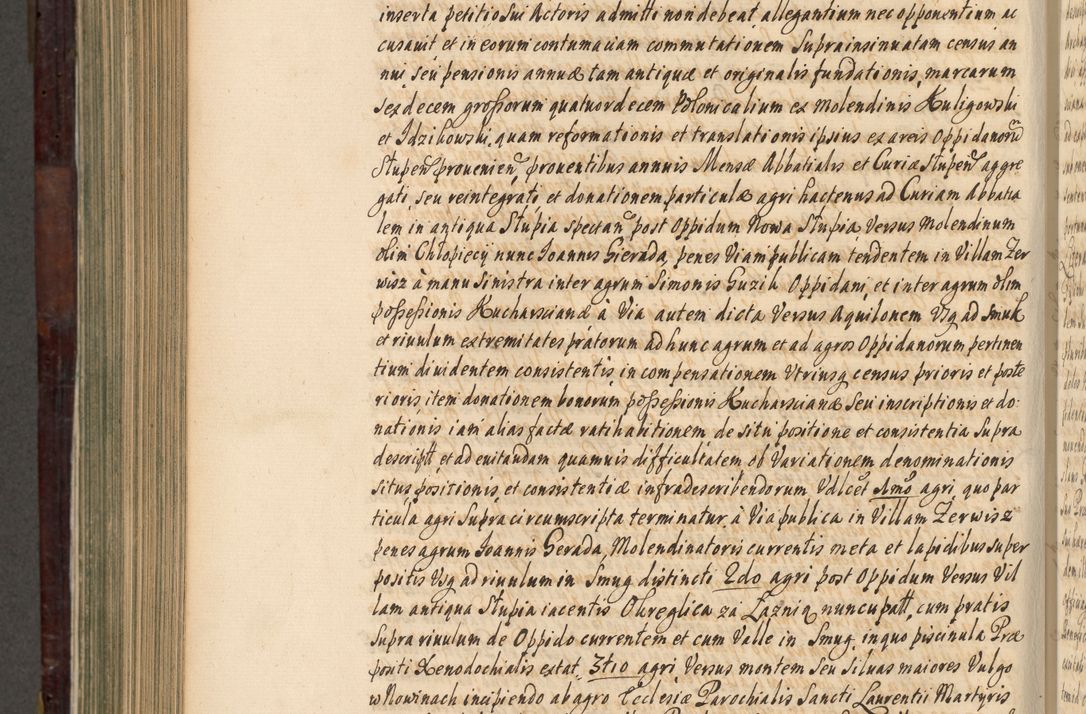 inserta petitio sui Actoris admitti non debeat allegantium nec opponentium ac
cusauit et in eorum contumaciam commutationem Suprainsinuatam census an
nui seu pensionis annuæ tam antiquæ et originalis fundationis, marcarum
sexdecem grossorum quatuordecem Polonicalium ex Molendinis Kuligowski
et Idzikowski, quam reformationis et translationis ipsius ex areis Oppidanorũ
Stupeñ proueniеñ, prouentibus annuis Mensæ Abbatialis et Curiæ Stupeñ aggre
gati, seu reintegrati et donationem particulæ agri hactenus ad Curiam Abbatia
lem in antiqua Stupia spectañ post Oppidum Nowa Stupia Versus Molendinum
olim Chłopiecÿ nunc Joannis Gierada, penes Viam publicam tendentem in Villam Zer
wisz à manu Sinistra inter agrum Simonis Guzik Oppidani, et inter agrum olim
possessionis Kucharscianæ à Via autem dicta Versus Aquilonem Usq ad Smuk
et riuulum extremitates pratorum ad hunc agrum et ad agros Oppidanorum pertinen
tium diuidentem consistentis, in compensationem Vtriusq census prioris et poste
rioris, item donationem bonorum possessionis Kucharscianæ seu inscriptionis et do:
nationis iam alias factæ ratihabitionem, de situ positione et consistentia Supra
descript et ad euitandam quamuis difficultatem ob Variationem denominationis
situs, positionis, et consistentiæ infradescribendorum Vdlcet Imo agri, quo par
ticula agri Supra circumscripta terminatur, à Via publica in Villam Zerwisz
penes agrum Joannis Gerada, Molendinatoris currentis meta et lapidibus super
positis Usq ad riuulum in Smug distincti 2do agri post Oppidum Versus Vil
lam antiqua Stupia iacentis Okreglica za Łaznią nuncupatt, cum pratis
Supra riuulum de Oppido currentem et cum Valle in Smug in quo piscinula Præ
positi Xenodochialis extat. 3tio agri Versus montem seu siluas maiores Vulgo
w Nowinach incipiendo ab agro Ecclesiæ Parochialis Sancti Laurentii Martyris